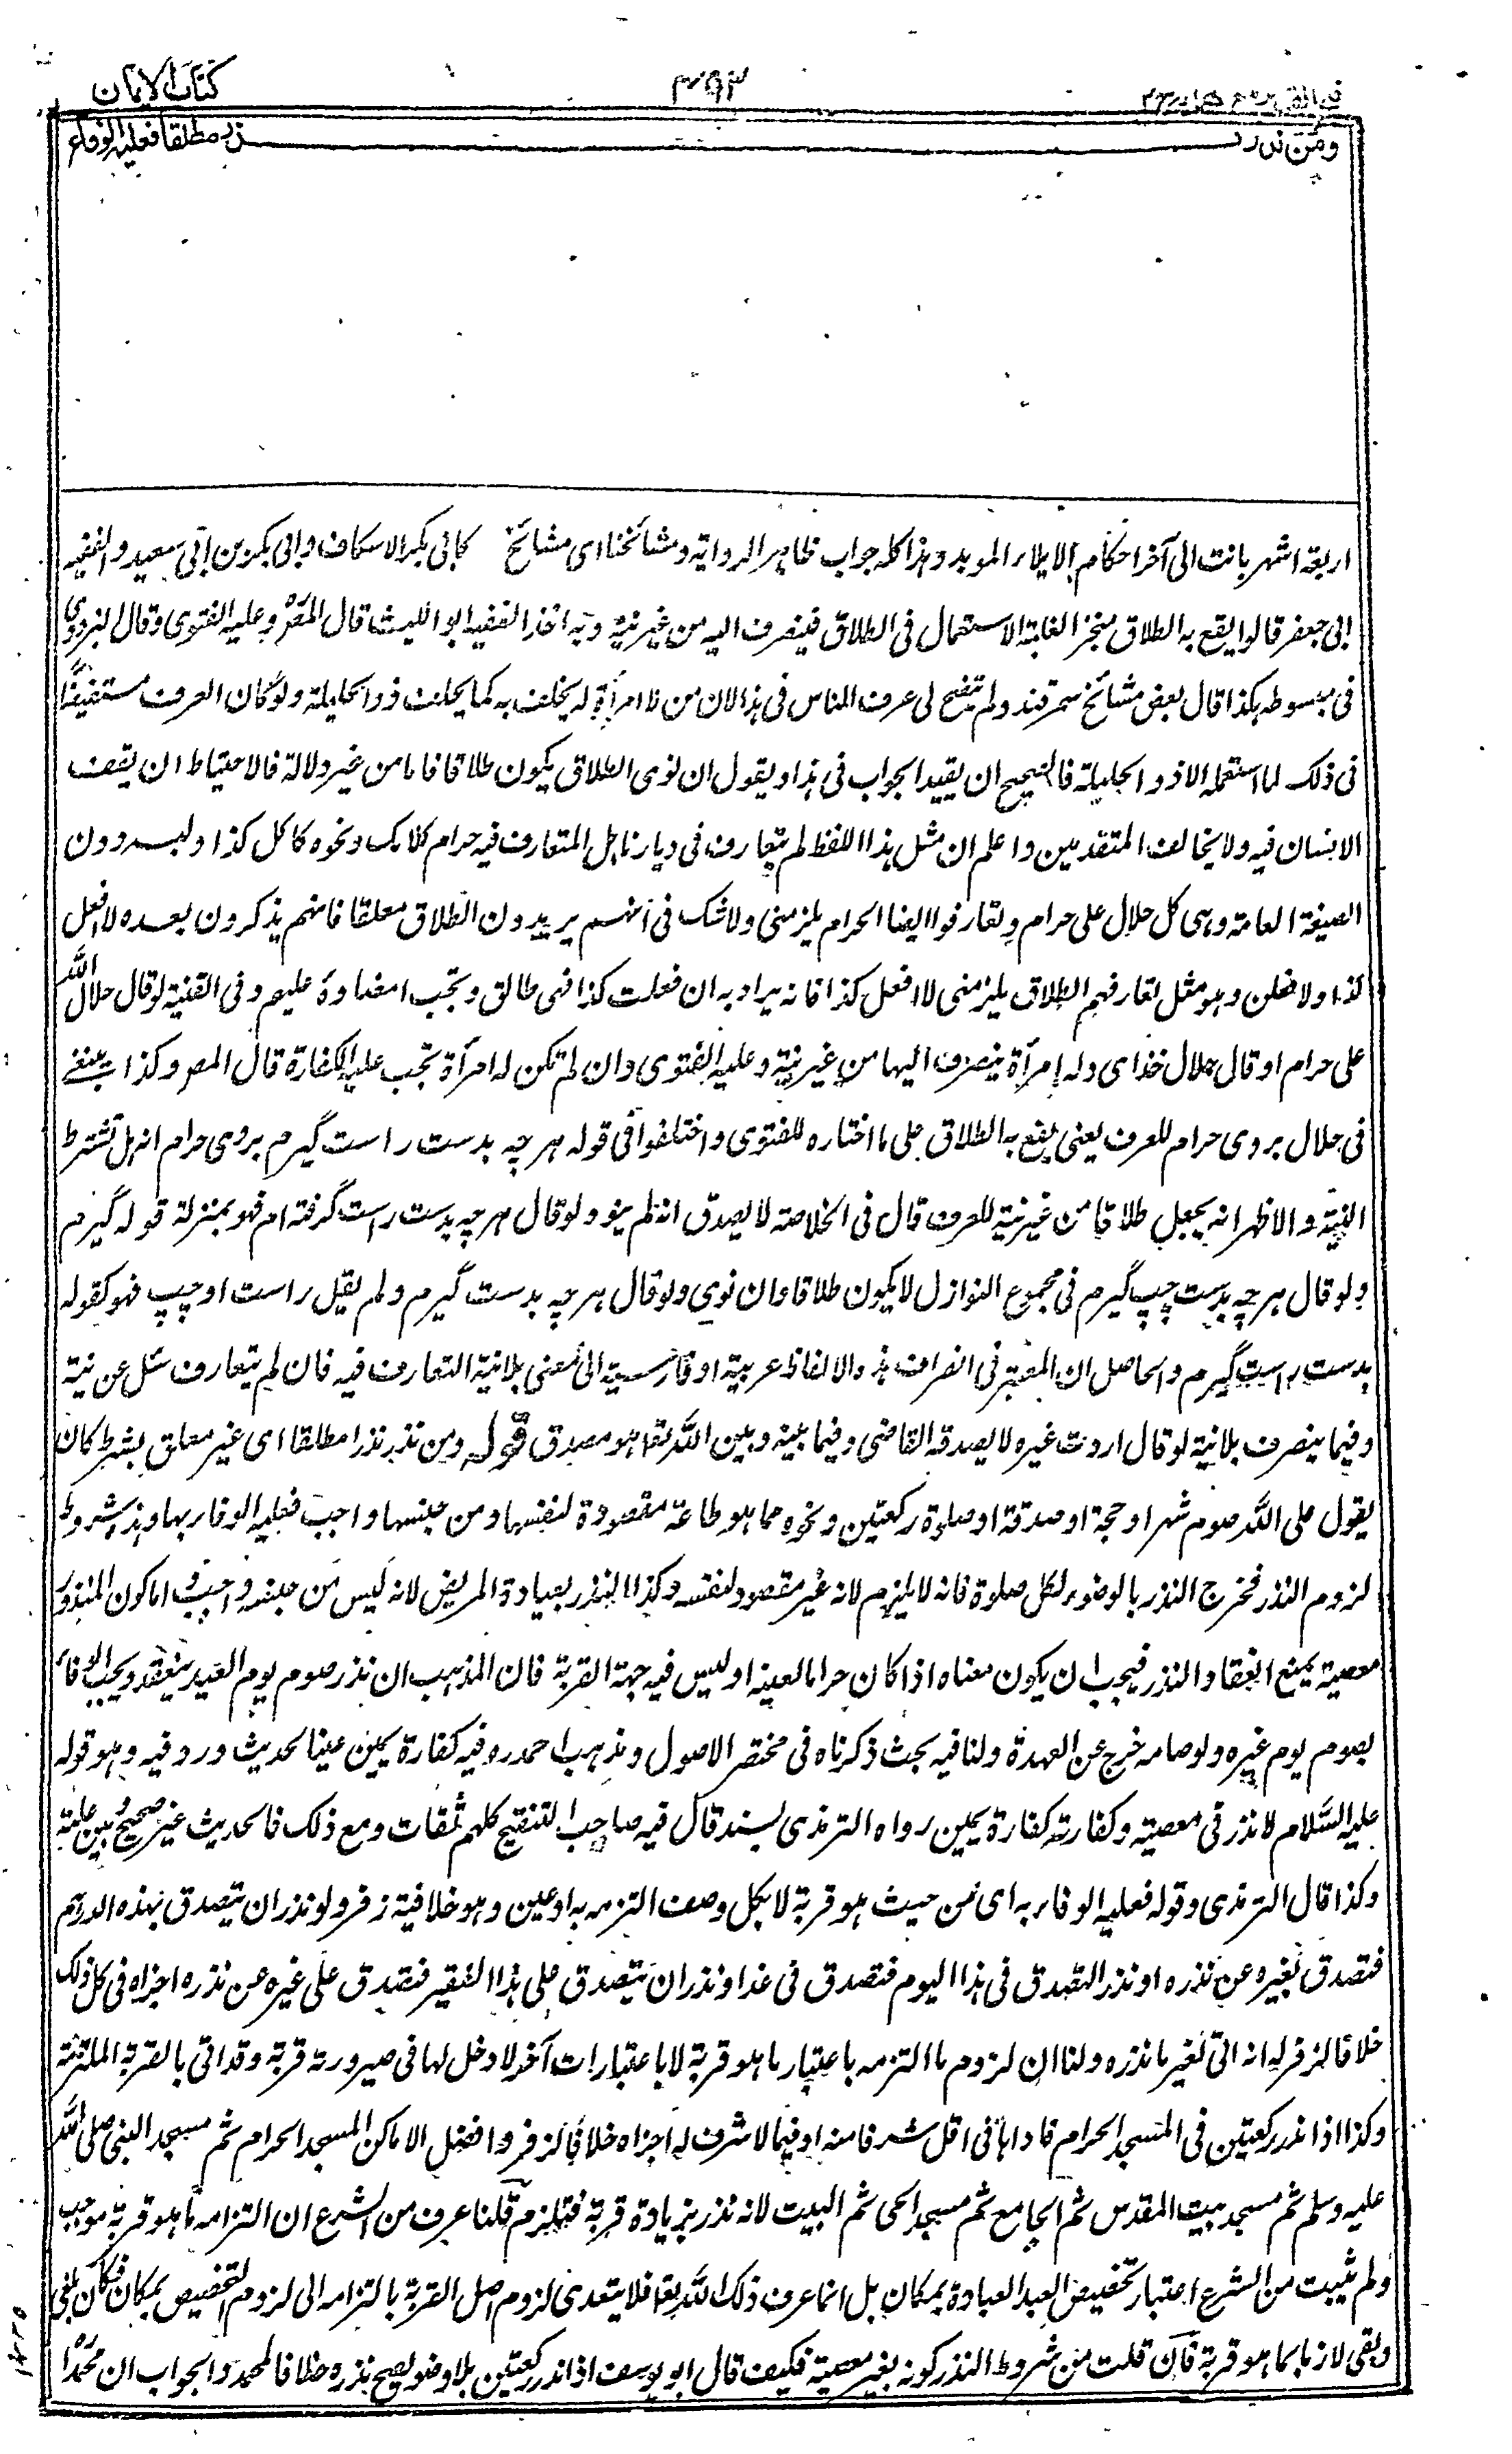 كتاب الايمان
٣٩٣
فتح القدير مع هدايه ج ٢
ومن نذر نذر مطلقا فعليه الوفاء
اربعة اشهر بانت الى آخر احكام الايلاء الموبد وهذا كله جواب ظاهر الرواية ومشائخنا اى مشائخ كابى بكر الاسكاف وابى بكر بن ابى سعيد والفقيه
ابى جعفر قالوا يقع به الطلاق منجز الغلبة الاستعمال فى الطلاق فينصرف اليه من غير نية وبه اخذ الفقيه ابو الليث قال المصره وعليه الفتوى وقال البزدوى
فى مبسوطه هكذا قال بعض مشائخ سمرقند ولم يتضح لى عرف الناس فى هذا لان من لا امرأة له يحلف به كما يحلف ذو الحليلة ولو كان العرف مستفيضا
فى ذلك لما استعمله الا ذو الحليلة فالصحيح ان يقيد الجواب فى هذا ويقول ان نوى الطلاق يكون طلاقا فاما من غير دلالة فالاحتياط ان يقف
الانسان فيه ولا يخالف المتقدمين واعلم ان مثل هذا اللفظ لم يتعارف فى ديارنا بل المتعارف فيه حرام كلامك ونحوه كاكل كذا ولبسه دون
الصيغة العامة وهى كل حلال على حرام وتعارفوا ايضا الحرام يلزمنى ولا شك فى انهم يريدون الطلاق معلقا فانهم يذكرون بعده لا افعل
كذا ولا فعلن وهو مثل تعارفهم الطلاق يلزمنى لا افعل كذا فانه يراد به ان فعلت كذا فهى طالق ويجب امضاوه عليهم وفى القنية لو قال حلال الله
على حرام او قال حلال خذاى وله امرأة ينصرف اليها من غير نية وعليه الفتوى وان لم تكن له امرأة تجب عليه الكفارة قال المص وكذا ينبغى
فى حلال بروى حرام للعرف يعنى يقع به الطلاق على ما اختاره للفتوى واختلفوا فى قوله هرچه بدست راست گيرم بروى حرام انه هل تشترط
النية والاظهر انه يجعل طلاقا من غير نية للعرف قال فى الخلاصة لا يصدق انه لم ينو ولو قال هرچه بدست راست گرفته ام فهو بمنزلة قوله گيرم
ولو قال هرچه بدست چپ گيرم فى مجموع النوازل لا يكون طلاقا وان نوى ولو قال هرچه بدست گيرم ولم يقل راست او چپ فهو كقوله
بدست راست گيرم والحاصل ان المعتبر فى انصراف هذه الالفاظ عربية او فارسية الى معنى بلا نية التعارف فيه فان لم يتعارف سئل عن نية
وفيما ينصرف بلا نية لو قال اردت غيره لا يصدقه القاضى وفيما بينه وبين الله تعا هو مصدق قوله ومن نذر نذرا مطلقا اى غير معلق بشرط كان
يقول على الله صوم شهر او حجة او صدقة او صلوة ركعتين ونحوه مما هو طاعة مقصودة لنفسها ومن جنسها واجب فعليه الوفاء بها وهذه شروط
لزوم النذر فخرج النذر بالوضوء لكل صلوة فانه لا يلزم لانه غير مقصود لنفسه وكذا النذر بعيادة المريض لانه ليس من جنسه واجب واما كون المنذور
معصية يمنع انعقاد النذر فيجب ان يكون معناه اذا كان حراما لعينه او ليس فيه جهة القربة فان المذهب ان نذر صوم يوم العيد ينعقد ويجب الوفاء
بصوم يوم غيره ولو صامه خرج عن العهدة ولنا فيه بحث ذكرناه فى مختصر الاصول ومذهب احمد ره فيه كفارة يمين عينا لحديث ورد فيه وهو قوله
عليه السلام لا نذر فى معصية وكفارته كفارة يمين رواه الترمذى بسند قال فيه صاحب التنقيح كلهم ثقات ومع ذلك فالحديث غير صحيح بين علته
وكذا قال الترمذى وقوله فعليه الوفاء به اى من حيث هو قربة لا بكل وصف التزمه به او عين وهو خلافية زفر ولو نذر ان يتصدق بهذه الدرهم
فتصدق بغيره عن نذره او نذر التصدق فى هذا اليوم فتصدق فى غد او نذر ان يتصدق على هذا الفقير فتصدق على غيره عن نذره اجزاه فى كل ذلك
خلافا لزفر له انه اتى بغير ما نذره ولنا ان لزوم ما التزمه باعتبار ما هو قربة لا باعتبارات آخر لا دخل لها فى صيرورته قربة وقد اتى بالقربة الملتزمة
وكذا اذا نذر ركعتين فى المسجد الحرام فاداها فى اقل شرفا منه او فيما لا شرف له اجزاه خلافا لزفر وافضل الاماكن المسجد الحرام ثم مسجد النبى صلى الله
عليه وسلم ثم مسجد بيت المقدس ثم الجامع ثم مسجد الحى ثم البيت لانه نذر بزيادة قربة فتلزم قلنا عرف من الشرع ان التزامه ما هو قربة موجب
ولم يثبت من الشرع اعتبار تخصيص العبد العبادة بمكان بل انما عرف ذلك لله تعا فلا يتعدى لزوم اصل القربة بالتزامه الى لزوم التخصيص بمكان فكان ملغى
وبقى لازما بما هو قربة فان قلت من شروط النذر كونه بغير معصية فكيف قال ابو يوسف اذا نذر ركعتين بلا وضو يصح نذره خلافا لمحمد والجواب ان محمدا